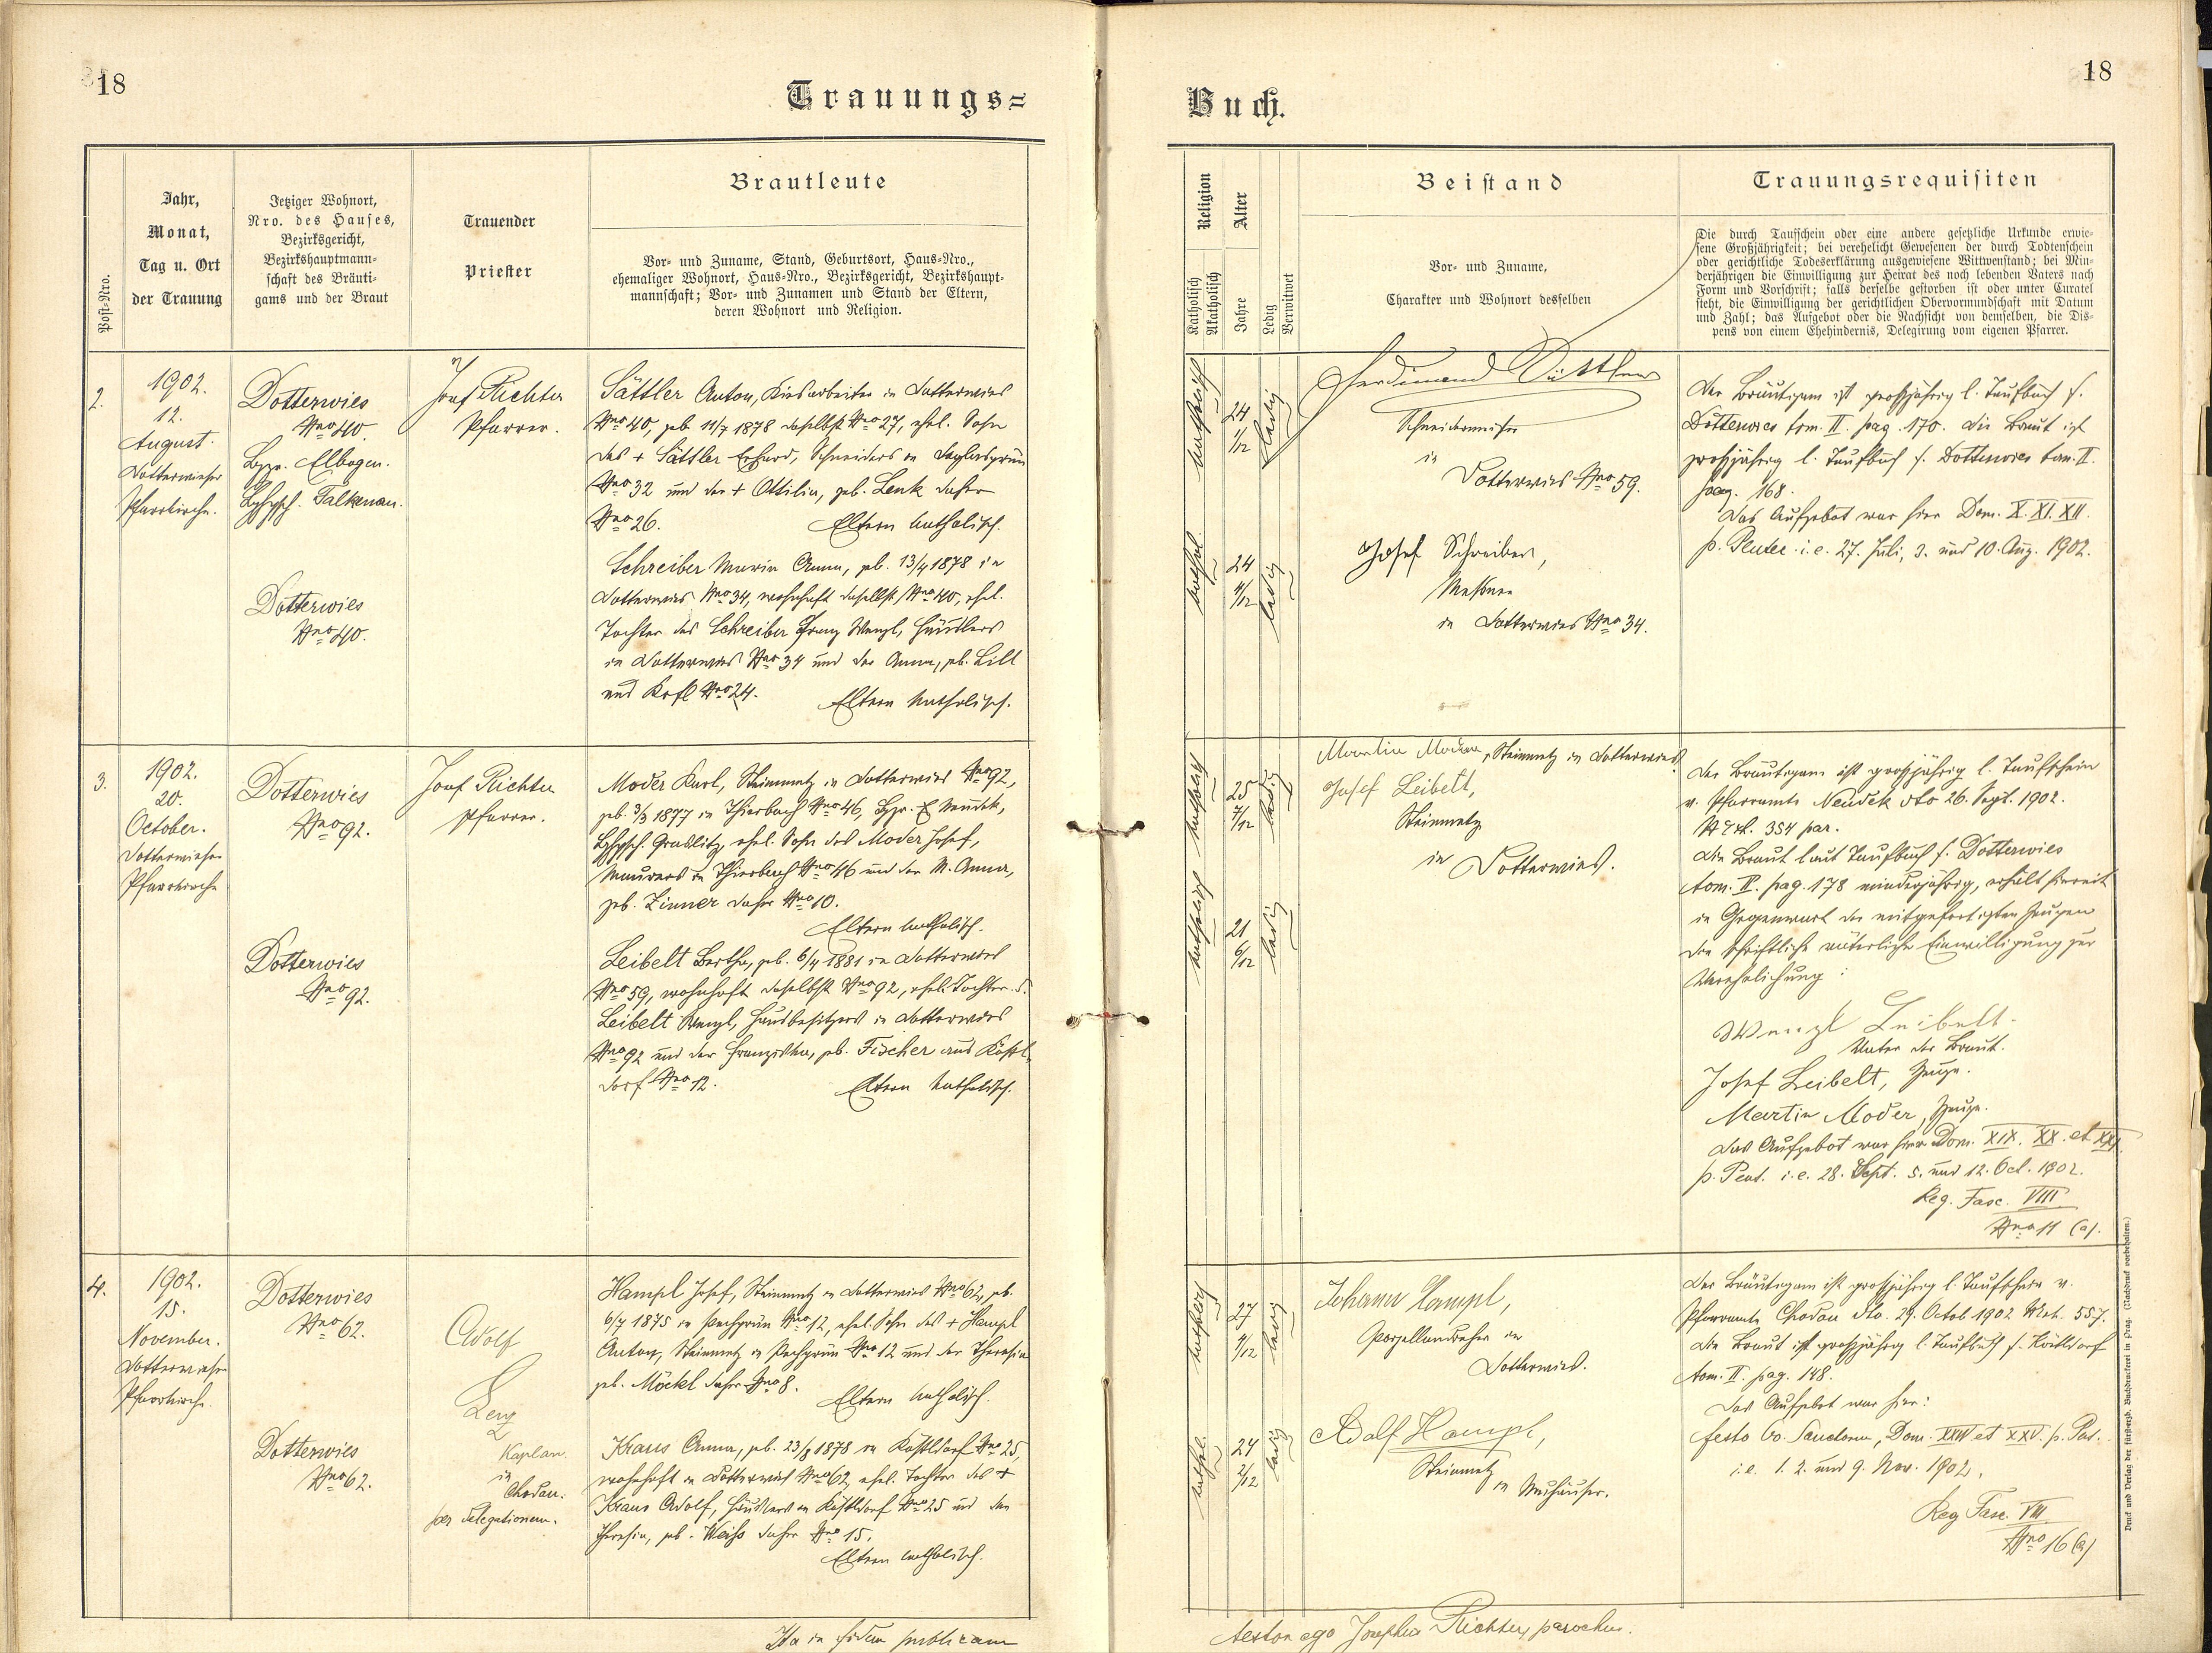 18
Trauungs=
Post-Nro.
Jahr,
Monat,
Tag u. Ort
der Trauung
Jetziger Wohnort,
Nro. des Hauses,
Bezirksgericht,
Bezirkshauptmann-
schaft des Bräuti-
gams und der Braut
Trauender
Priester
Brautleute
Vor- und Zuname, Stand, Geburtsort, Haus-Nro.,
ehemaliger Wohnort, Haus-Nro., Bezirksgericht, Bezirkshaupt-
mannschaft; Vor- und Zunamen und Stand der Eltern,
deren Wohnort und Religion.
2.
1902.
12.
August.
Dotterwieser
Pfarrkirche.
Dotterwies
Nro 40.
Bzg. Elbogen.
Bzhpsch. Falkenau.
Dotterwies
Nro 40.
Josef Richter
Pfarrer.
Sättler Anton, Kiesarbeiter in Dotterwies
Nro 40, geb. 11/7 1878 daselbst Nro 27, ehel. Sohn
des + Sättler Erhard, Schneiders in
Nro 32 und der + Ottilia, geb. Lenk daher
Nro 26. Eltern katholisch.
Schreiber Maria Anna, geb. 13/4 1878 in
Dotterwies Nro 34, wohnhaft daselbst Nro 40, ehel.
Tochter des Schreiber Franz Wenzl, Häuslers
in Dotterwies Nro 34 und der Anna, geb. Lill
aus Nro 24. Eltern katholisch.
3.
1902.
20.
October.
Dotterwieser
Pfarrkirche
Dotterwies
Nro 92.
Dotterwies
Nro 92.
Josef Richter
Pfarrer.
Moder Karl, Steinmetz in Dotterwies Nro 92,
geb. 3/3 1877 in Thierbach Nro 46, Bzg. Neudek,
Bzhpsch. Graslitz, ehel. Sohn des Moder Josef,
Maurers in Thierbach Nro 46 und der M. Anna,
geb. Zinner daher Nro 10.
Eltern katholisch.
Leibelt Bertha, geb. 6/4 1881 in Dotterwies
Nro 59, wohnhaft daselbst Nro 92, ehel. Tochter d.
Leibelt Wenzl, Hausbesitzers in Dotterwies
Nro 92 und der Franziska, geb. Fischer aus Köstl-
dorf Nro 12. Eltern katholisch.
4.
1902.
15.
November.
Dotterwieser
Pfarrkirche.
Dotterwies
Nro 62.
Dotterwies
Nro 62.
Adolf
Lenz
Kaplan
in
Chodau.
per delegationem.
Hampl Josef, Steinmetz in Dotterwies Nro 62, geb.
6/7 1875 in Pechgrün Nro 12, ehel. Sohn des + Hampl
Anton, Steinmetz in Pechgrün Nro 12 und der Theresia
geb. Möckl daher Nro 8. Eltern katholisch.
Kraus Anna, geb. 23/8 1878 in Köstldorf Nro 25,
wohnhaft in Dotterwies Nro 62, ehel. Tochter des +
Kraus Adolf, Häuslers in Köstldorf Nro 25 und der
Theresia, geb. Weiß daher Nro 15.
Eltern katholisch.
Ita in fidem publicam
18
Buch.
Religion
Katholisch
Akatholisch
Alter
Jahre
Ledig
Verwitwet
Beistand
Vor- und Zuname,
Charakter und Wohnort desselben
Trauungsrequisiten
Die durch Taufschein oder eine andere gesetzliche Urkunde erwie-
sene Großjährigkeit; bei verehelicht Gewesenen der durch Todtenschein
oder gerichtliche Todeserklärung ausgewiesene Wittwenstand; bei Min-
derjährigen die Einwilligung zur Heirat des noch lebenden Vaters nach
Form und Vorschrift; falls derselbe gestorben ist oder unter Curatel
steht, die Einwilligung der gerichtlichen Obervormundschaft mit Datum
und Zahl; das Aufgebot oder die Nachsicht von demselben, die Dis-
pens von einem Ehehindernis, Delegirung vom eigenen Pfarrer.
katholisch
24
1/12
ledig
kathol.
24
4/12
ledig
Ferdinand Sättler
Schneidermeister
in
Dotterwies Nro 59.
Josef Schreiber,
Messner
in Dotterwies Nro 34.
Der Bräutigam ist großjährig l. Taufbuch f.
Dotterwies tom. II. pag. 170. Die Braut ist
großjährig l. Taufbuch f. Dotterwies tom. II.
pag. 168.
Das Aufgebot war hier Dom. X. XI. XII.
p. Pentec. i. e. 27. Juli, 3. und 10. Aug. 1902.
katholisch
25
7/12
ledig
katholisch
21
6/12
ledig
Martin Moder, Steinmetz in Dotterwies.
Josef Leibelt,
Steinmetz
in Dotterwies.
Der Bräutigam ist großjährig l. Taufschein
v. Pfarramte Neudek dto 26. Sept. 1902.
354 par.
Die Braut laut Taufbuch f. Dotterwies
tom. II. pag. 178 minderjährig, erhält hiemit
in Gegenwart der mitgefertigten Zeugen
die schriftliche väterliche Einwilligung zur
Verehelichung:
Wenzl Leibelt
Vater der Braut.
Josef Leibelt, Zeuge.
Martin Moder, Zeuge.
Das Aufgebot war hier Dom. XIX. XX. et XXI.
p. Pent. i. e. 28. Sept. 5. und 12. Oct. 1902.
Reg. Fasc. VIII
Nro 11 (a).
katholisch
27
4/12
ledig
kathol.
24
2/12
ledig
Johann Hampl,
Porzellandreher in
Dotterwies.
Adolf Hampl,
Steinmetz
in Neuhäuser.
Der Bräutigam ist großjährig l. Taufschein v.
Pfarramte Chodau dto. 29. Octob. 1902 557.
Die Braut ist großjährig l. Taufbuch f. Köstldorf
tom. II. pag. 148.
Das Aufgebot war hier:
festo Oo. Sanctorum, Dom. XXIV et XXV. p. Pent.
i. e. 1. 2. und 9. Nov. 1902.
Reg. Fasc. VIII
Nro 16 (a)
testor ego Josephus Richter, parochus.
Druck und Verlag der fürsterzb. Buchdruckerei in Prag. (Nachdruck vorbehalten.)